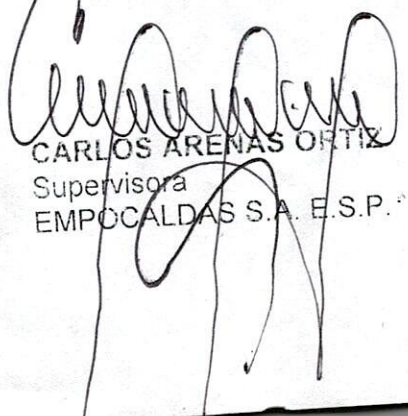 CARLOS ARENAS ORTIZ
Supervisora
EMPOCALDAS S.A. E.S.P.